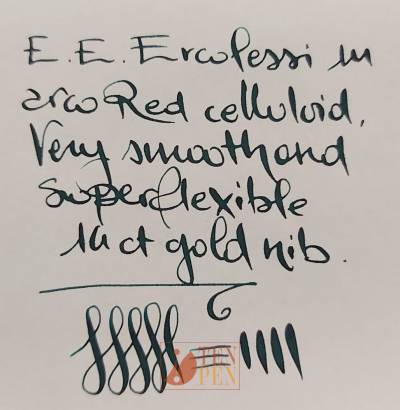 E. E. Ercolessi in
arco Red celluloid,
Very smooth and
superflexible
14 ct gold nib.
TEN
PEN